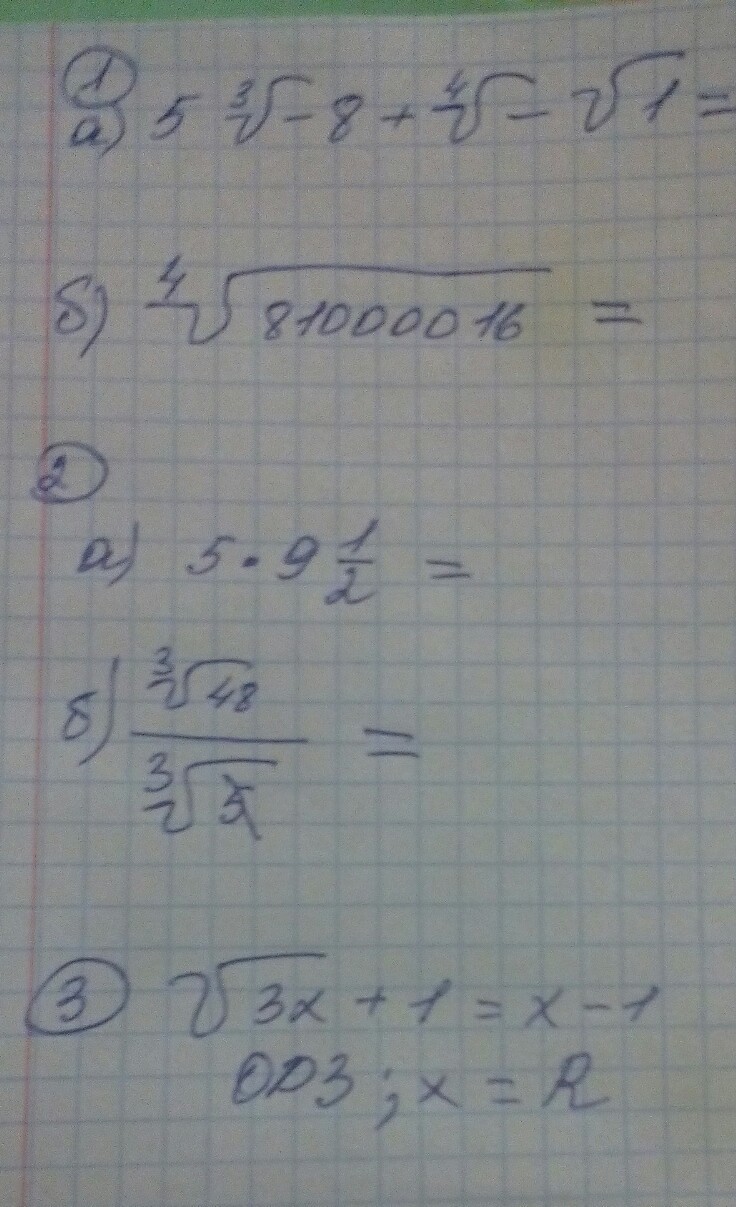 1
а) 5 ∛-8 + ∜- √1 =
б) ∜81000016 =
2
а) 5 · 9 1/2 =
б) ∛48 / ∛3 =
3 √3x + 1 = x - 1
ОДЗ ; x = R